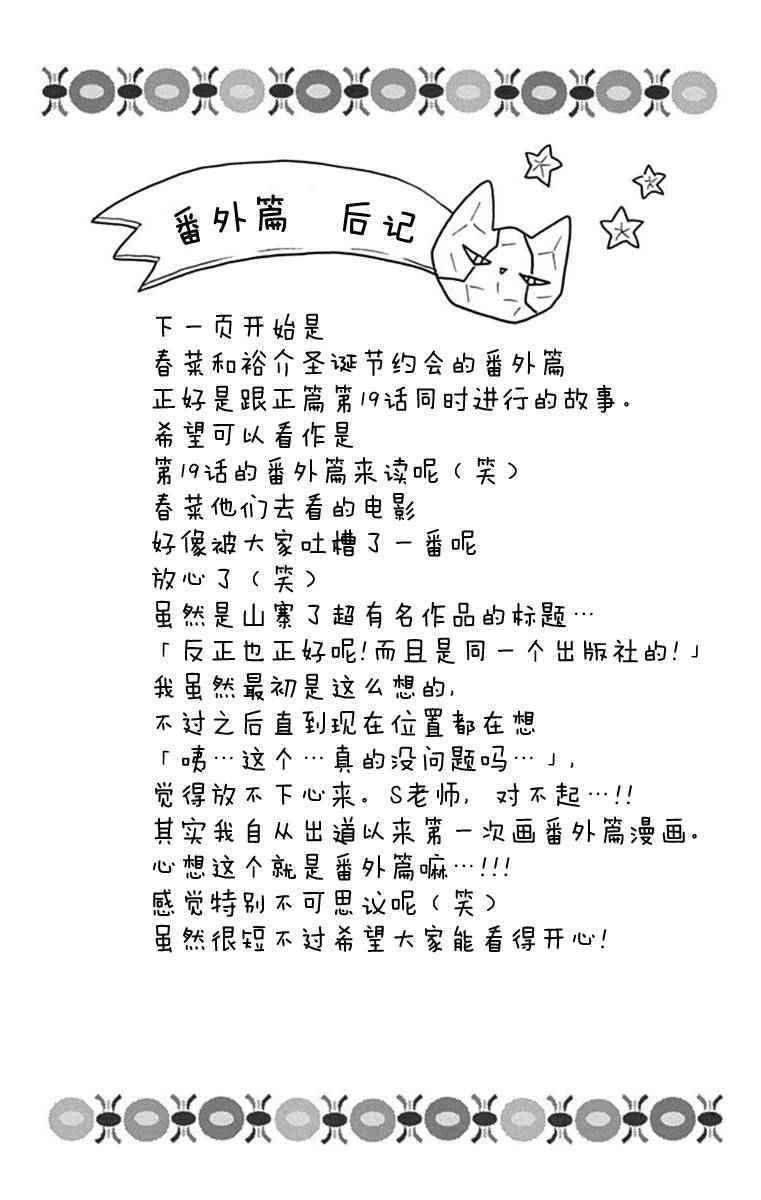 番外篇 后记
下一页开始是
春菜和裕介圣诞节约会的番外篇
正好是跟正篇第19话同时进行的故事。
希望可以看作是
第19话的番外篇来读呢（笑）
春菜他们去看的电影
好像被大家吐槽了一番呢
放心了（笑）
虽然是山寨了超有名作品的标题…
「反正也正好呢!而且是同一个出版社的!」
我虽然最初是这么想的,
不过之后直到现在位置都在想
「咦…这个…真的没问题吗…」,
觉得放不下心来。S老师, 对不起…!!
其实我自从出道以来第一次画番外篇漫画。
心想这个就是番外篇嘛…!!!
感觉特别不可思议呢（笑）
虽然很短不过希望大家能看得开心!